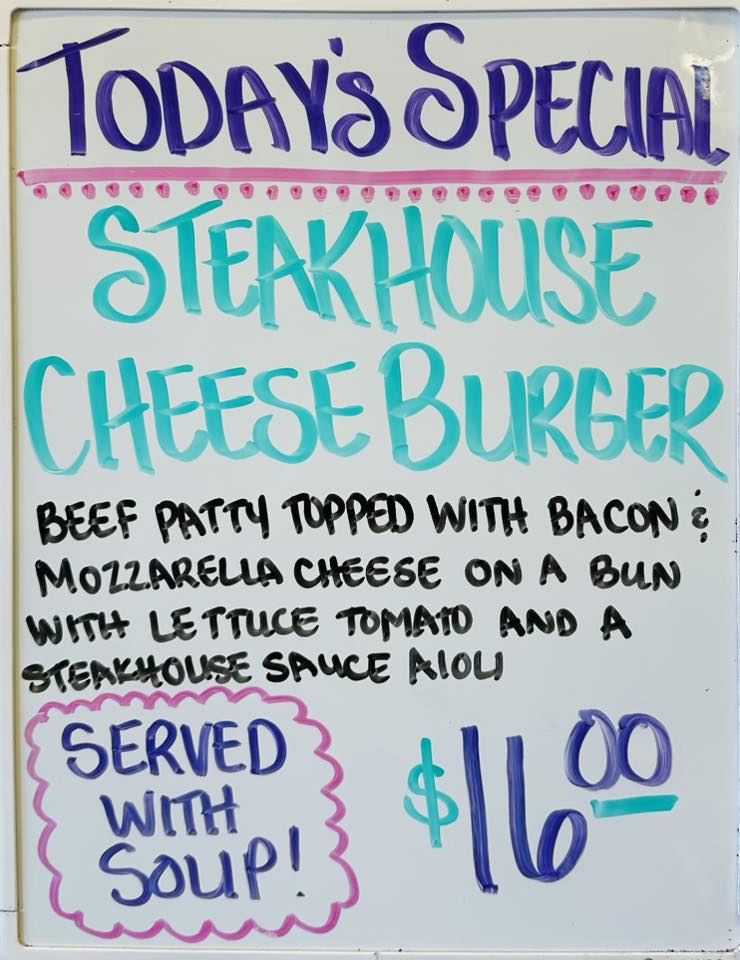 TODAY'S SPECIAL
STEAKHOUSE
CHEESE BURGER
BEEF PATTY TOPPED WITH BACON &
MOZZARELLA CHEESE ON A BUN
WITH LETTUCE TOMATO AND A
STEAKHOUSE SAUCE AIOLI
SERVED
WITH
SOUP!
$16.00